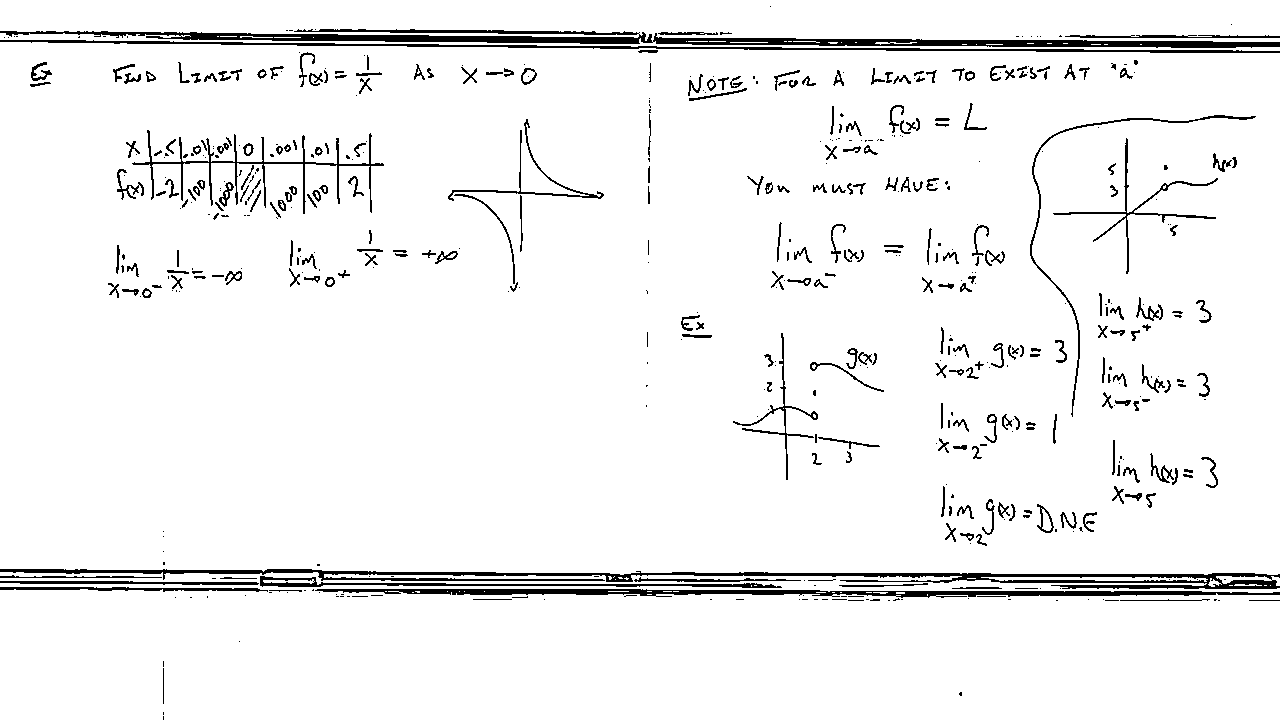 Ex FIND LIMIT OF f(x) = 1/x AS x → 0
x | -.5 | -.01 | -.001 | 0 | .001 | .01 | .5
f(x) | -2 | -100 | -1000 | | 1000 | 100 | 2
lim x→0⁻ 1/x = -∞ lim x→0⁺ 1/x = +∞
NOTE: FOR A LIMIT TO EXIST AT "a"
lim x→a f(x) = L
YOU MUST HAVE:
lim x→a⁻ f(x) = lim x→a⁺ f(x)
Ex
g(x)
3
2
1
2 3
lim x→2⁺ g(x) = 3
lim x→2⁻ g(x) = 1
lim x→2 g(x) = D.N.E
h(x)
5
3
5
lim x→5⁺ h(x) = 3
lim x→5⁻ h(x) = 3
lim x→5 h(x) = 3